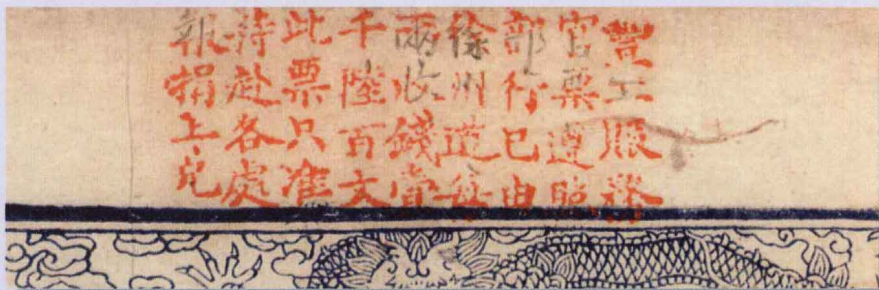 豐工賑
官票遵照
部行已由
徐州道每
兩收錢壹
千陸百文
此票只准
持赴各處
報捐上兌